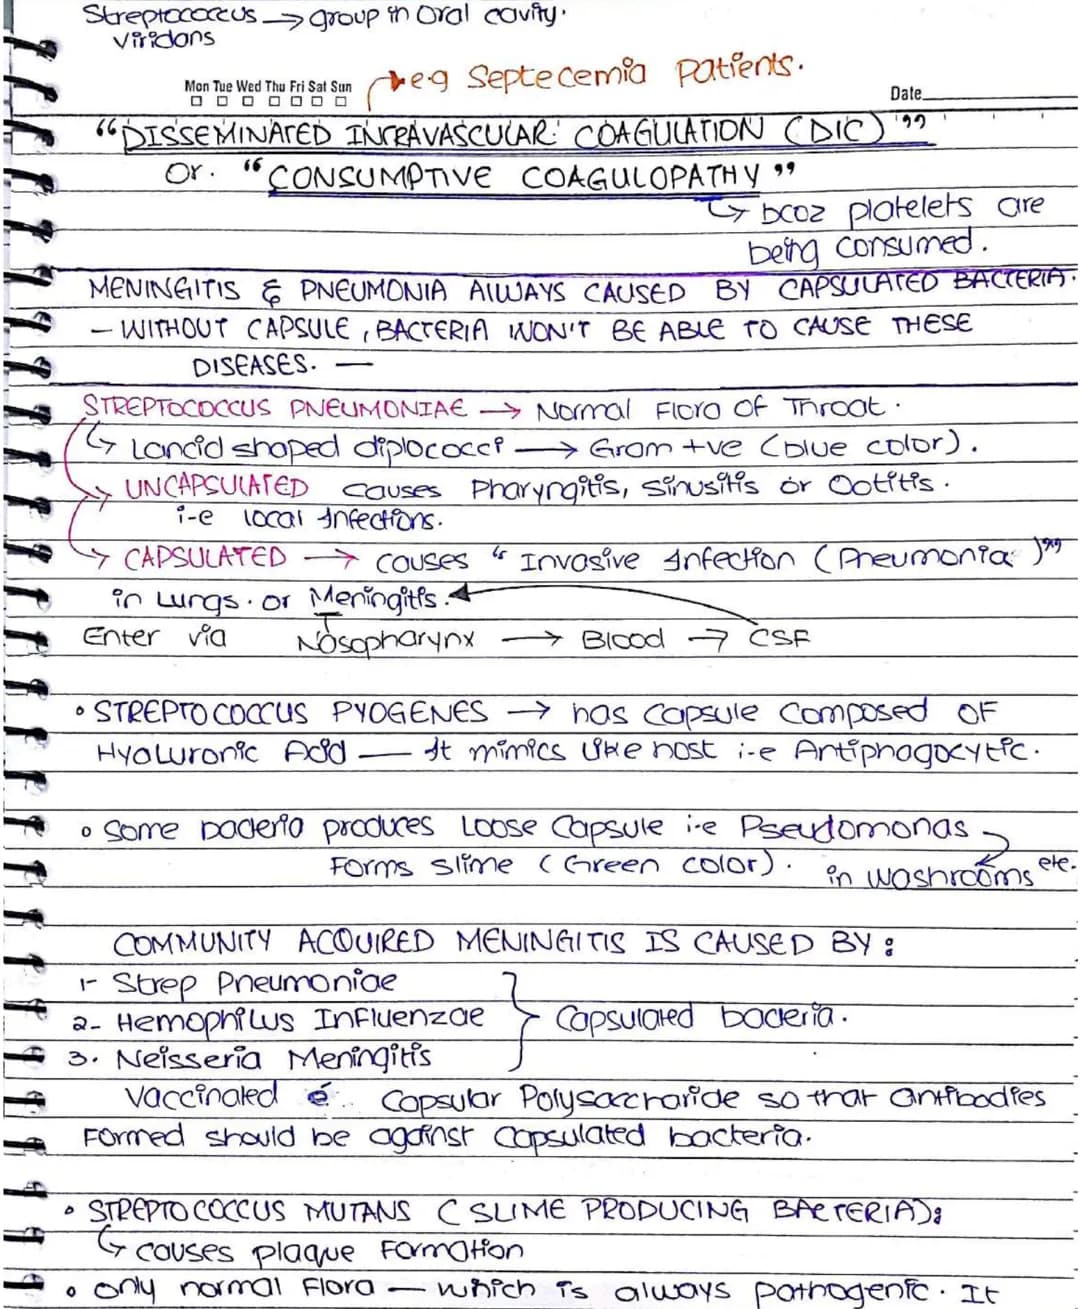 Streptococcus → group in oral cavity.
viridans
→ e.g Septecemia Patients.
Mon Tue Wed Thu Fri Sat Sun
Date
"DISSEMINATED INTRAVASCULAR COAGULATION (DIC)"
Or. "CONSUMPTIVE COAGULOPATHY"
↳ bcoz platelets are
being consumed.
MENINGITIS & PNEUMONIA AlWAYS CAUSED BY CAPSULATED BACTERIA.
- WITHOUT CAPSULE, BACTERIA WON'T BE ABLE TO CAUSE THESE
DISEASES. —
STREPTOCOCCUS PNEUMONIAE → Normal Flora OF Throat.
↳ Lancid shaped diplococci → Gram +ve (blue color).
→ UNCAPSULATED causes Pharyngitis, Sinusitis or Ootitis.
i-e local Infections.
→ CAPSULATED → causes "Invasive Infection (Pneumonia)"
in Lungs. or Meningitis.
Enter via Nasopharynx → Blood → CSF
• STREPTOCOCCUS PYOGENES → has capsule composed OF
Hyaluronic Acid — It mimics like host i-e Antiphagocytic.
• Some bacteria produces Loose Capsule i-e Pseudomonas
Forms slime (Green color). in washrooms etc.
COMMUNITY ACQUIRED MENINGITIS IS CAUSED BY:
1- Strep Pneumoniae
2- Hemophilus Influenzae } Capsulated bacteria.
3. Neisseria Meningitis
Vaccinated c̄ Capsular Polysaccharide so that antibodies
Formed should be against capsulated bacteria.
• STREPTOCOCCUS MUTANS (SLIME PRODUCING BACTERIA):
↳ causes plaque Formation
• only normal Flora — which is always pathogenic. It